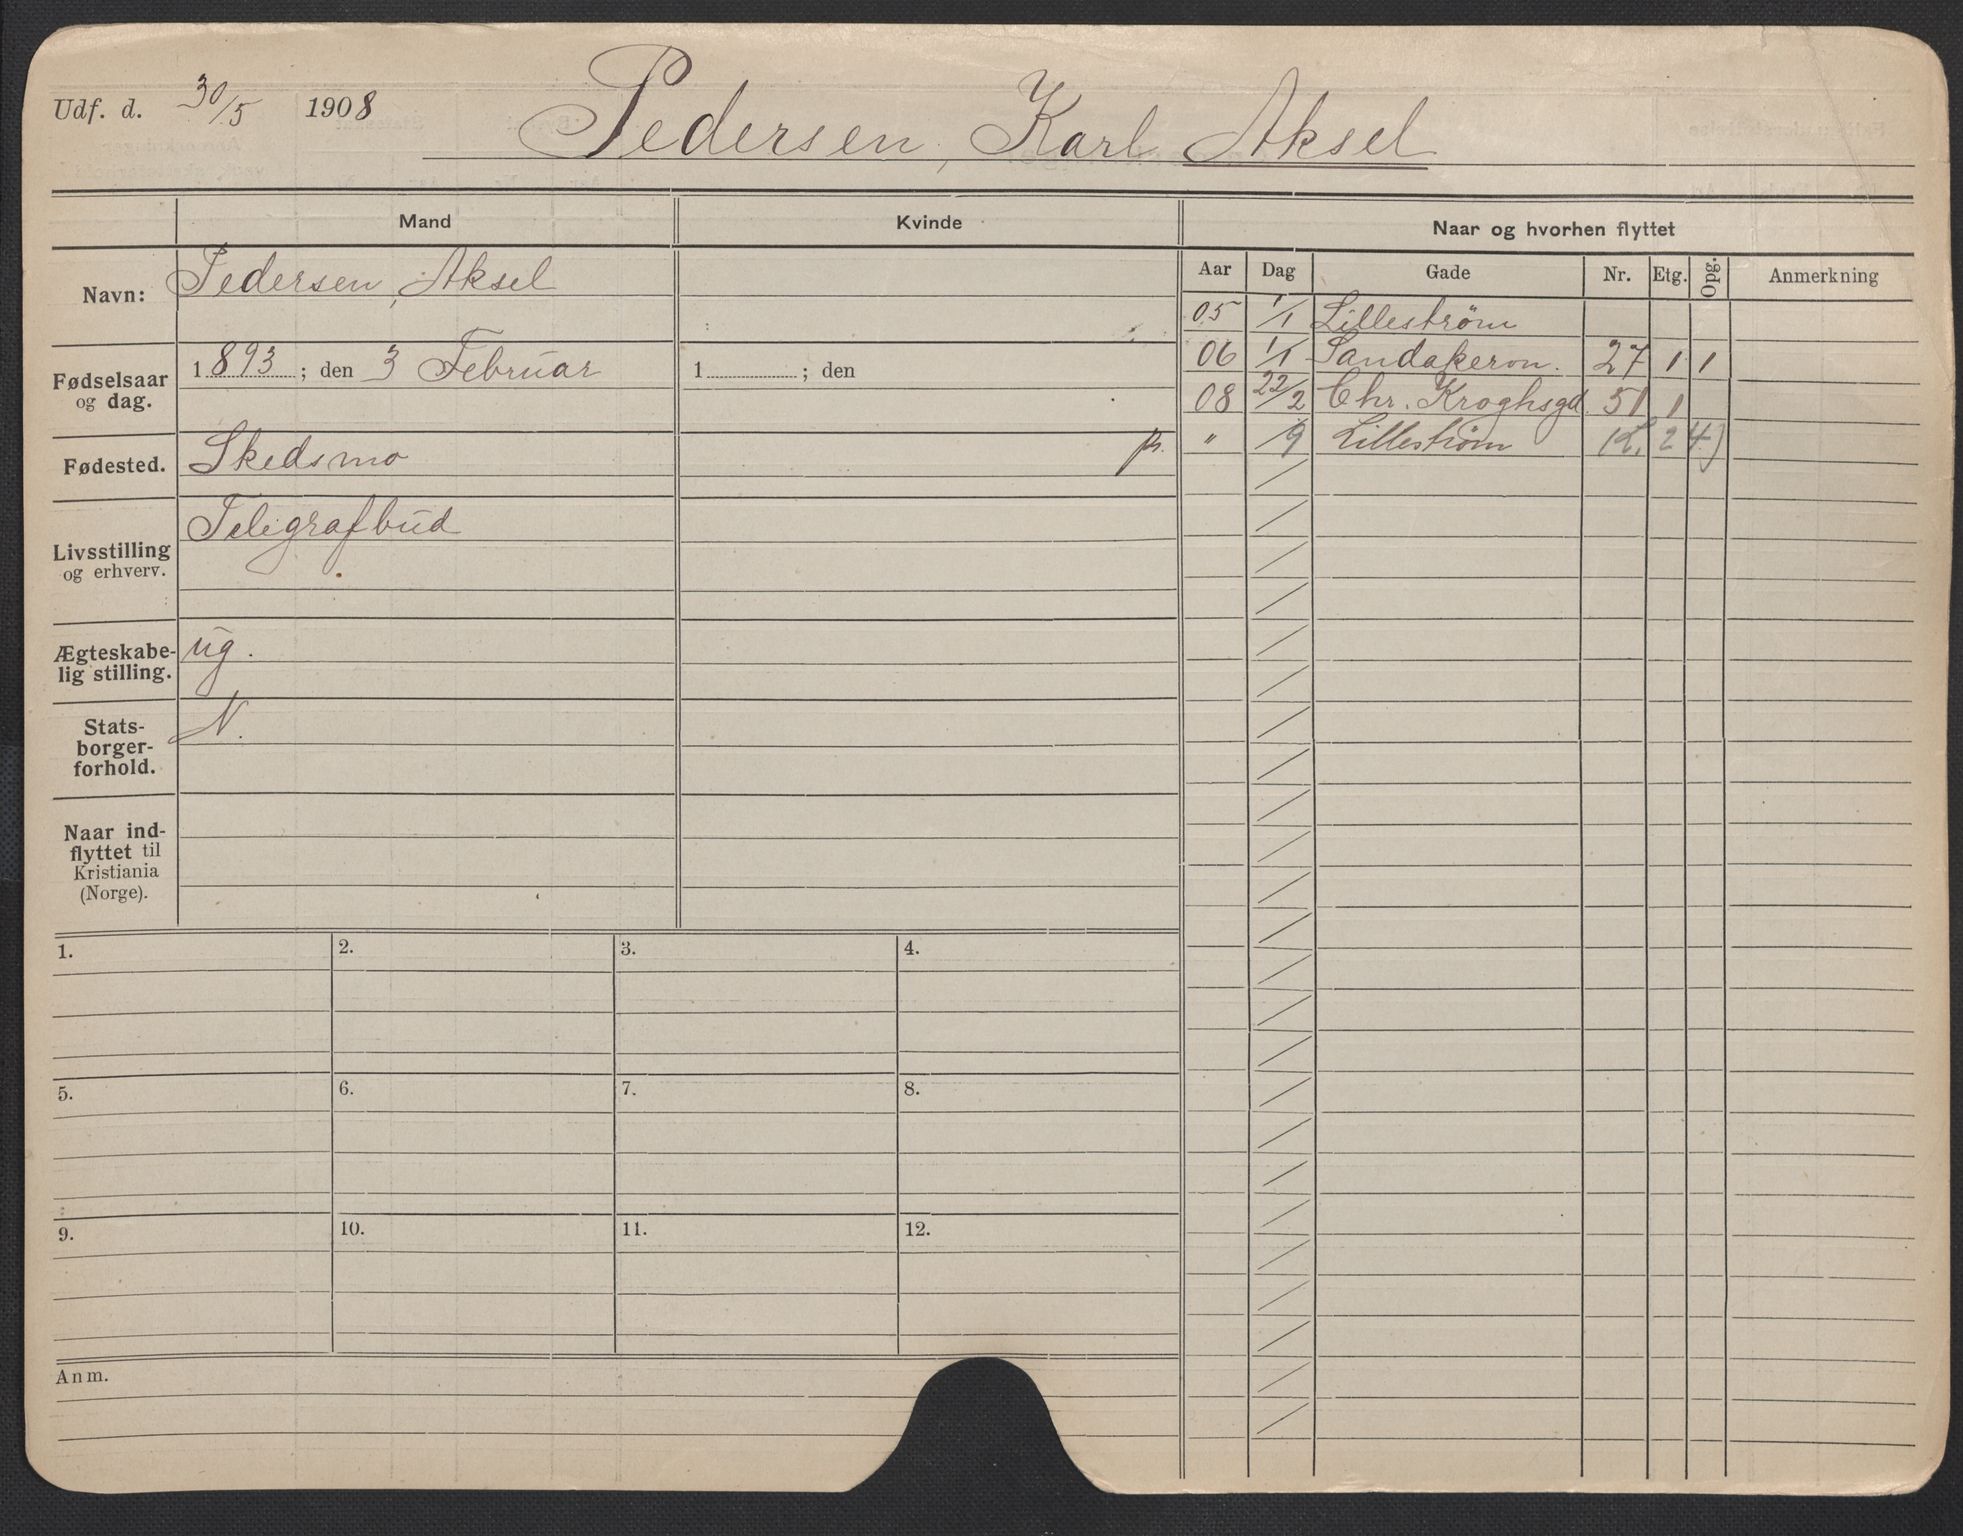 Udf. d. 30/5 1908 Pedersen, Karl Aksel
Mand Kvinde Naar og hvorhen flyttet
Aar Dag Gade Nr. Etg. Opg. Anmerkning
Navn: Pedersen, Aksel
05 1/1 Lilleström
06 1/1 Sandakeron. 27 1 1
08 22/2 Chr. Kroghsgd. 51 1
" /9 Lilleström (L. 24)
Fødselsaar
og dag. 1893; den 3 Februar 1 ; den
Fødested. Skedsmo
Livsstilling
og erhverv. Telegrafbud
Ægteskabe-
lig stilling. ug.
Stats-
borger-
forhold. N.
Naar ind-
flyttet til
Kristiania
(Norge).
1. 2. 3. 4.
5. 6. 7. 8.
9. 10. 11. 12.
Anm.